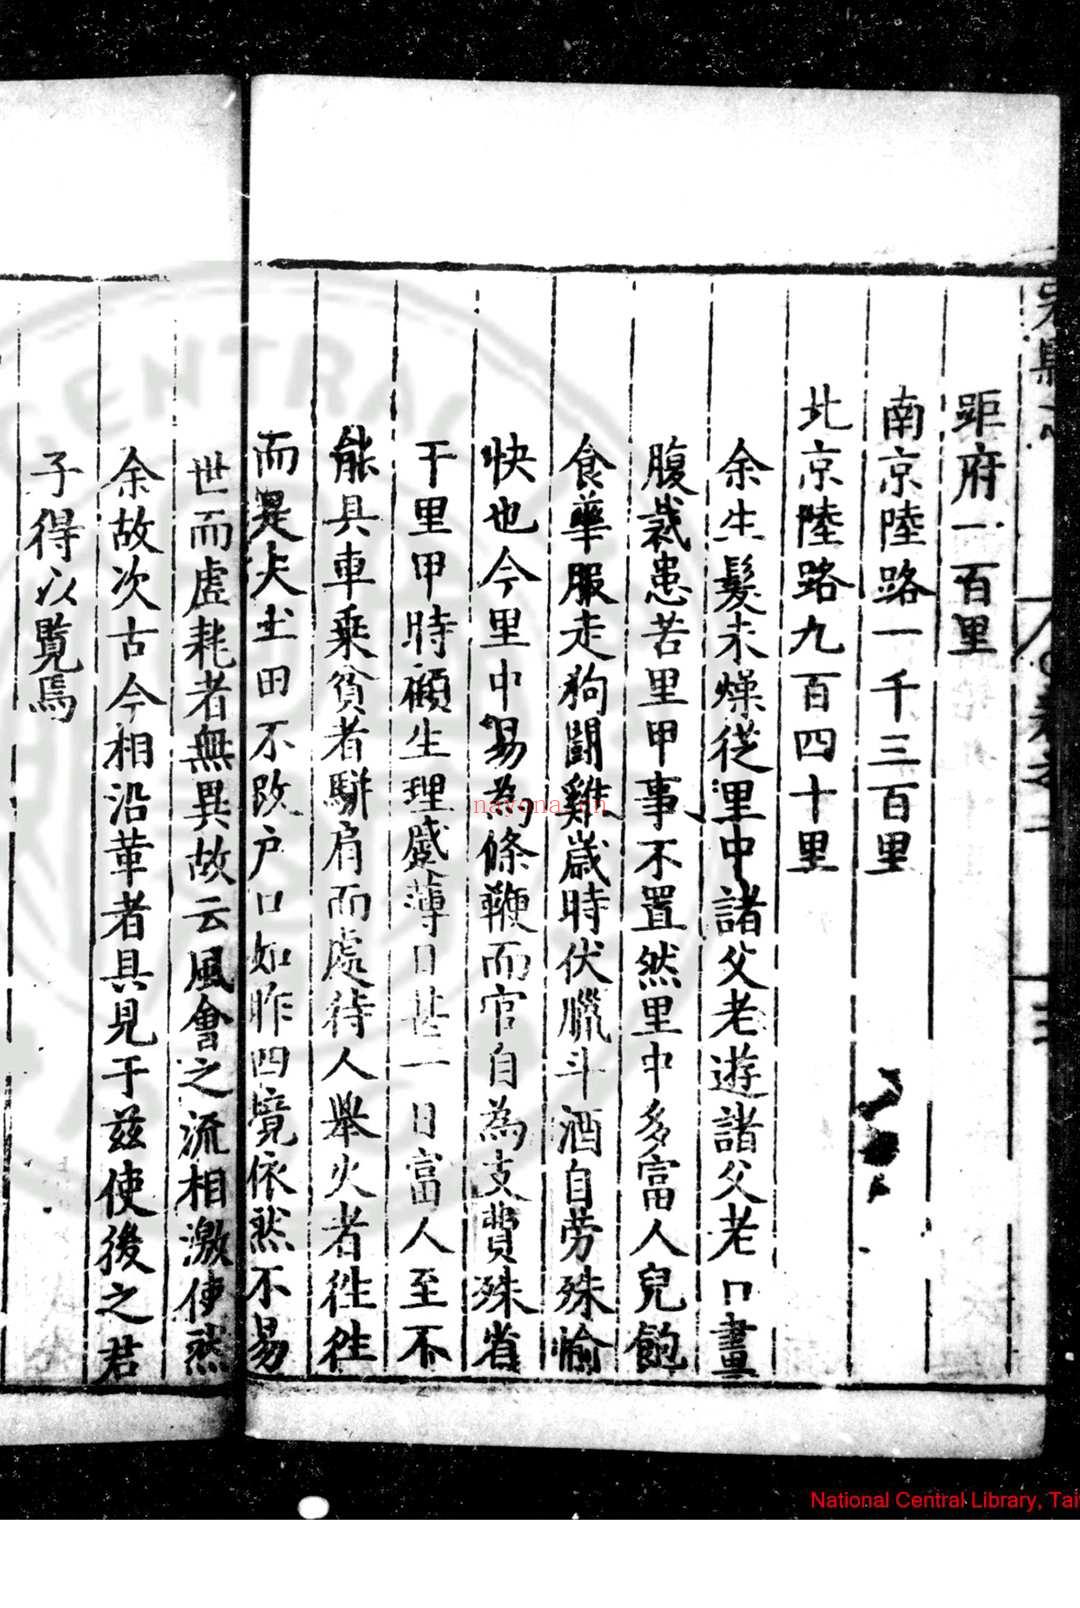 距府一百里
南京陸路一千三百里
北京陸路九百四十里
余生髮未燥從里中諸父老遊諸父老口畫
腹裁患苦里甲事不置然里中多富人兒飽
食華服走狗鬪雞歲時伏臘斗酒自劳殊愉
快也今里中易為條鞭而官自為支費殊省
于里甲時顧生理蹙薄日甚一日富人至不
能具車乗貧者駢肩而處待人舉火者徃徃
而是夫土田不改户口如昨四境依然不易
世而虚耗者無異故云風會之流相激使然
余故次古今相沿革者具見于茲使後之君
子得以覧焉
nayona.cn
National Central Library, Tai